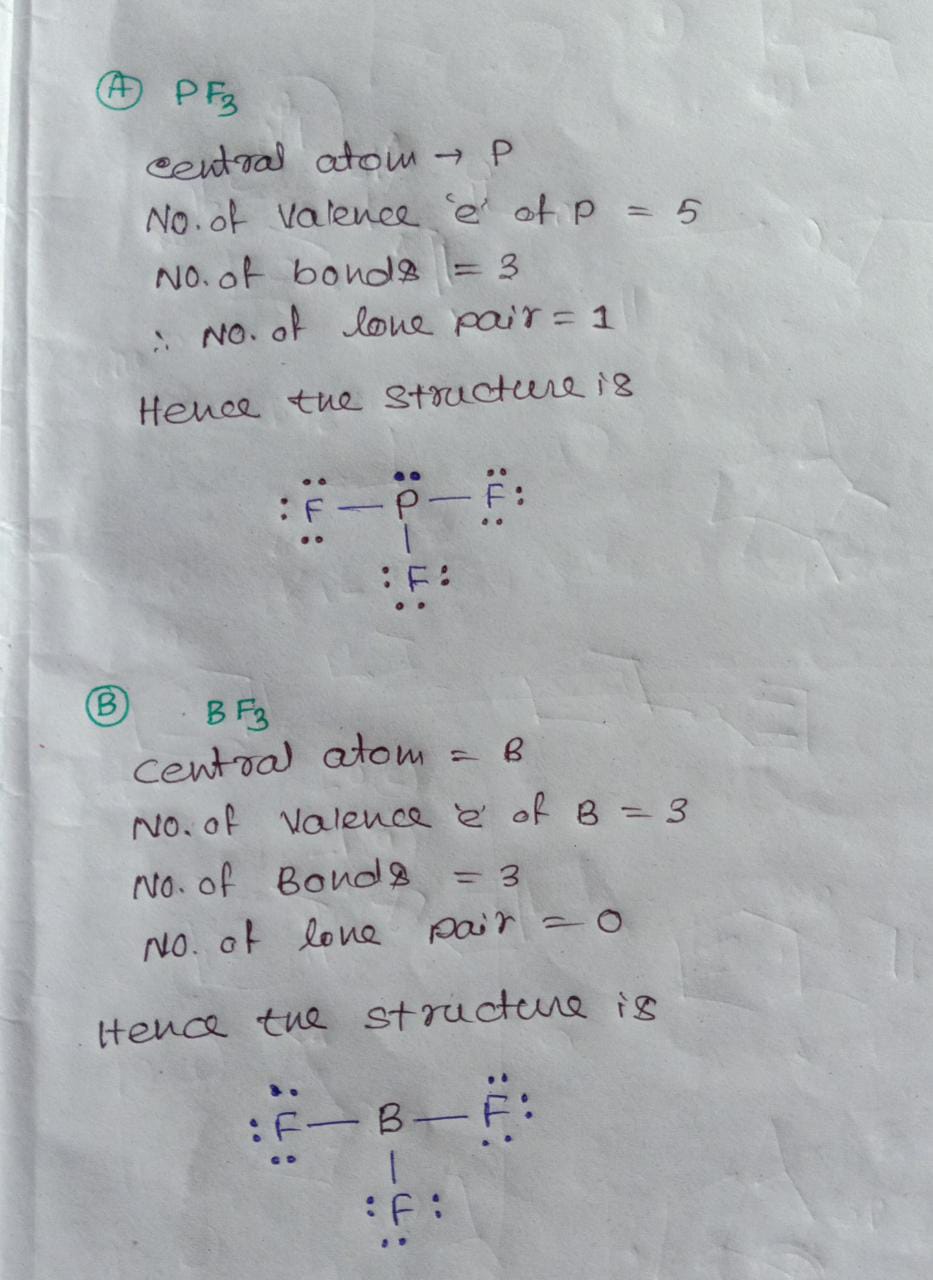 A PF3
central atom → P
No. of Valence 'e' of P = 5
NO. of bonds = 3
∴ NO. of lone pair = 1
Hence the structure is
:F — P — F:
:F:
B BF3
central atom = B
NO. of Valence 'e' of B = 3
NO. of Bonds = 3
NO. of lone pair = 0
Hence the structure is
:F — B — F:
:F: